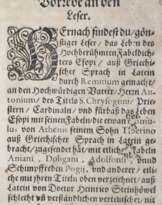 Vorrede an den
Leser.
Hernach findest du, gün-
stiger Leser, das Leben des
Hochberühmten Fabeldich-
ters Esopi, auß Griechi-
scher Sprach in Latein
durch Remitium gemacht,
an den Hochwürdigen Vatter, Herrn An-
tonium, des Tituls S. Chrysogoni Prie-
stern, Cardinaln, und fürbaß das Leben
Esopi mit seinen Fabeln, die etwan
lus von Athenis seinem Sohn Tiberino
auß Griechischer Sprach in Latein ge-
bracht, zugesendet hat, mit etlichen Fabeln
Aniani, Doligani, Adelfonsi, und
Schimpffreden Pogii, und anderer,
che mit ihren Titeln oben verzeichnet, auß
Latein von Doctor Heinrico Steinhöwel
schlecht und verständlichen vertieret, nicht